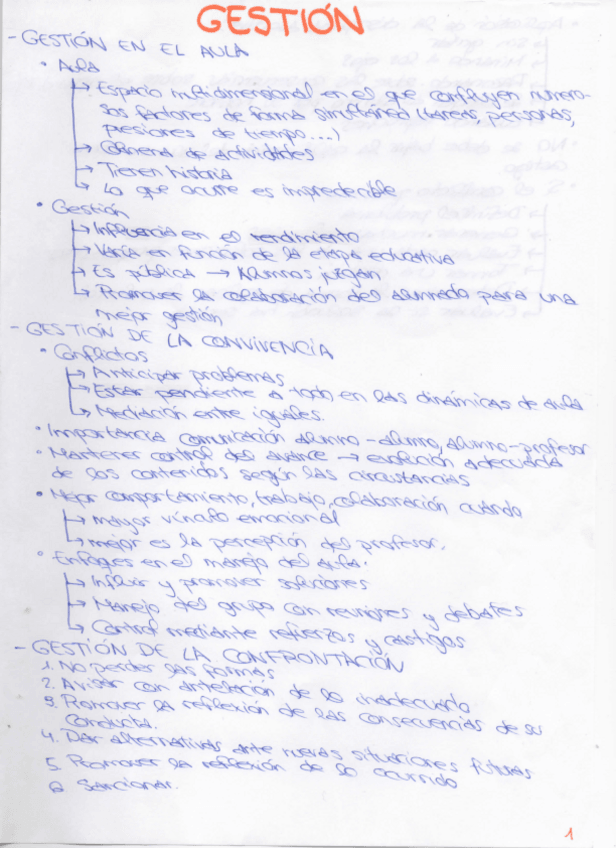 GESTIÓN
- GESTIÓN EN EL AULA
• Aula
↳ Espacio multidimensional en el que confluyen numero-
sos factores de forma simultánea (tareas, personas,
presiones de tiempo...)
↳ Colmena de actividades
↳ Tienen historia
↳ Lo que ocurre es impredecible
• Gestión
↳ Influencia en el rendimiento
↳ Varía en función de la etapa educativa
↳ Es pública → Alumnos juzgan
↳ Promover la colaboración del alumnado para una
mejor gestión
- GESTIÓN DE LA CONVIVENCIA
• Conflictos
↳ Anticipar problemas
↳ Estar pendiente a todo en las dinámicas de aula
↳ Mediación entre iguales.
• Importancia comunicación alumno-alumno, alumno-profesor
• Mantener control del avance → evolución adecuada
de los contenidos según las circustancias
• Mejor comportamiento, trabajo, colaboración cuando
↳ mayor vínculo emocional
↳ mejor es la percepción del profesor.
• Enfoques en el manejo del aula:
↳ Influir y promover soluciones
↳ Manejo del grupo con reuniones y debates
↳ Control mediante refuerzos y castigos
- GESTIÓN DE LA CONFRONTACIÓN
1. No perder las formas
2. Avisar con antelación de lo inadecuado
3. Promover la reflexión de las consecuencias de su
conducta.
4. Dar alternativas ante nuevas situaciones futuras
5. Promover la reflexión de lo ocurrido
6 Sancionar.
1